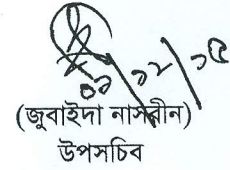 ০১/১২/১৫
(জুবাইদা নাসরীন)
উপসচিব